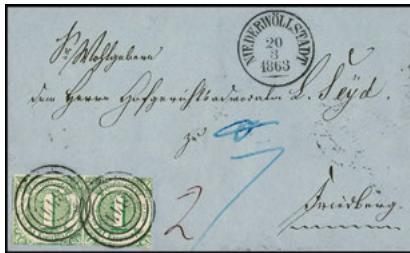 NIEDERWÖLLSTADT
20
3
1863
Sr Wohlgeboren
dem Herrn Hofgerichtsadvocaten L. Seyd.
zu
2
7
Friedberg.